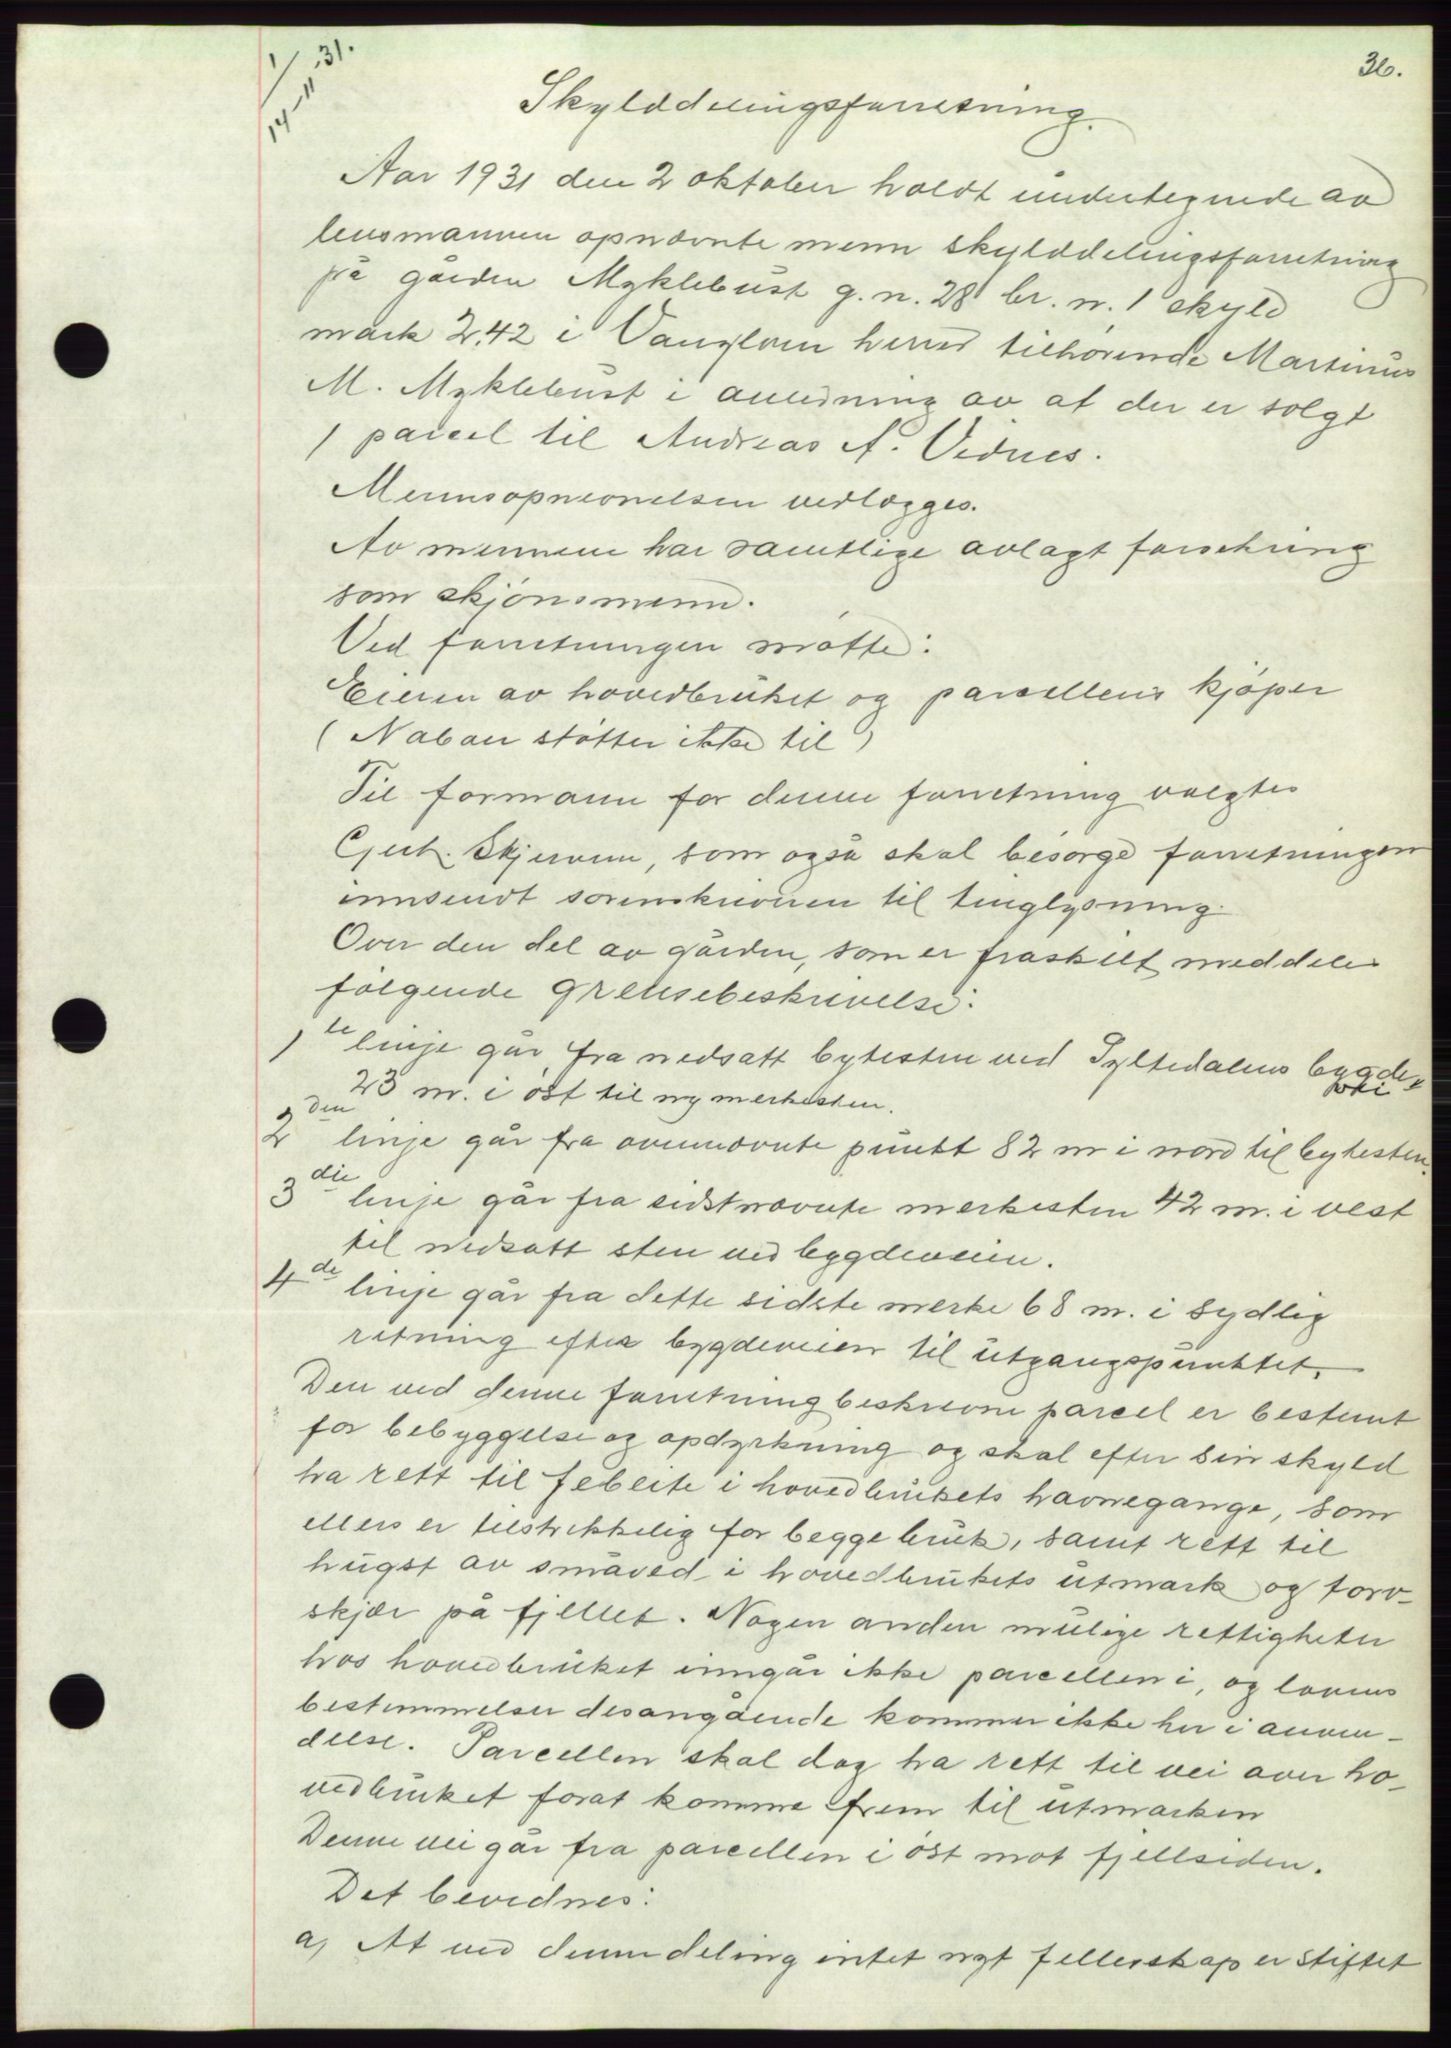 1/14-11-31.
36.
Skylddelingsforretning.
Aar 1931 den 2 oktober holdt undertegnede av
lensmannen opnævnte menn skylddelingsforretning
på gården Myklebust g.n. 28 br. n. 1 skyld
mark 2.42 i Vanylven herred tilhørende Martinus
M. Myklebust i anledning av at der er solgt
1 parcel til Andreas A. Vidnes.
Mennsopnevnelsen vedlægges.
Av mennene har samtlige avlagt forsikring
som skjønsmenn.
Ved forretningen møtte:
Eieren av hovedbruket og parcellens kjøper
(Naboer støtter ikke til)
Til formann for denne forretning valgtes
Gert. Skjerven, som også skal besørge forretningen
innsendt sorenskriveren til tinglysning.
Over den del av gården, som er fraskilt meddeles
følgende grensebeskrivelse:
1te linje går fra nedsatt bytesten ved Syltedalens bygde-
vei
23 m. i øst til ny merkesten.
2den linje går fra ovennevnte punkt 82 m i nord til bytesten.
3die linje går fra sidstnævnte merkesten 42 m. i vest
til nedsatt sten ved bygdeveien.
4de linje går fra dette sidste merke 68 m. i sydlig
retning efter bygdeveien til utgangspunktet.
Den ved denne forretning beskrevne parcel er bestemt
for bebyggelse og opdyrkning og skal efter sin skyld
ha rett til febeite i hovedbrukets havnegange, som
ellers er tilstrekkelig for begge bruk, samt rett til
hugst av småved i hovedbrukets utmark og torv-
skjær på fjellet. Nogen anden mulige rettigheter
hos hovedbruket inngår ikke parcellen i, og lovens
bestemmelser desangående kommer ikke her i anven-
delse. Parcellen skal dog ha rett til vei over ho-
vedbruket forat komme frem til utmarken
Denne vei går fra parcellen i øst mot fjellsiden.
Det bevidnes:
a, At ved denne deling intet nyt fellesskap er stiftet